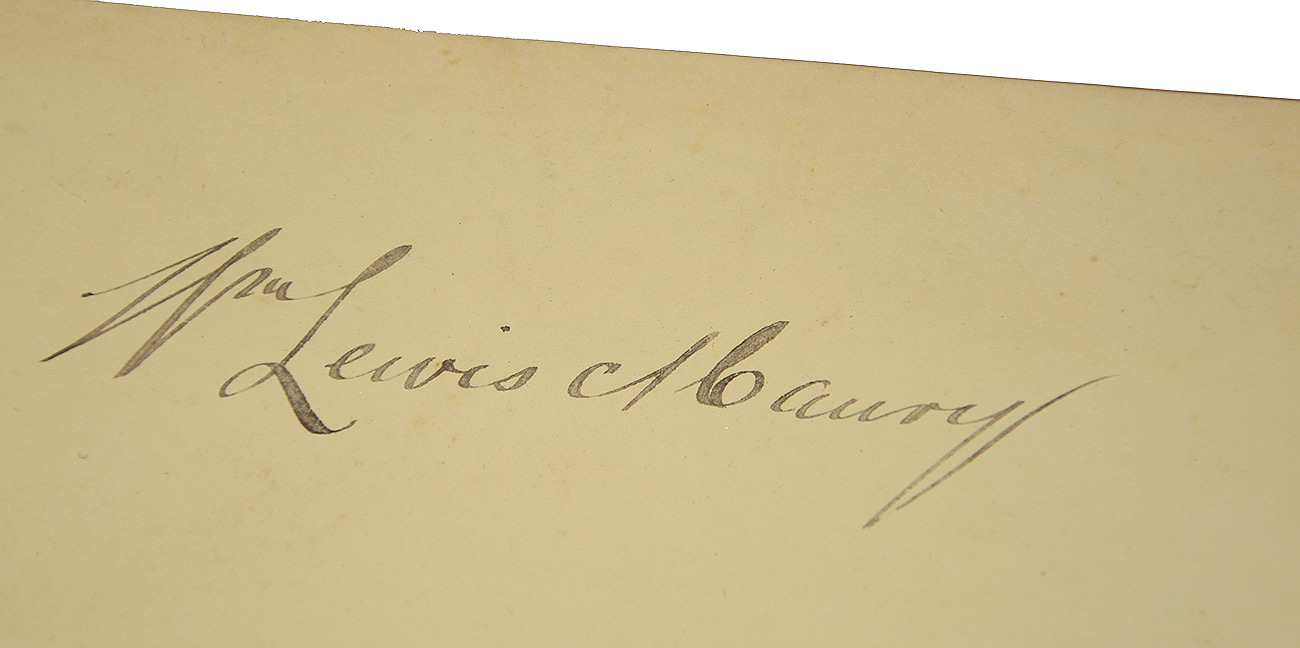 Wm Lewis Maury